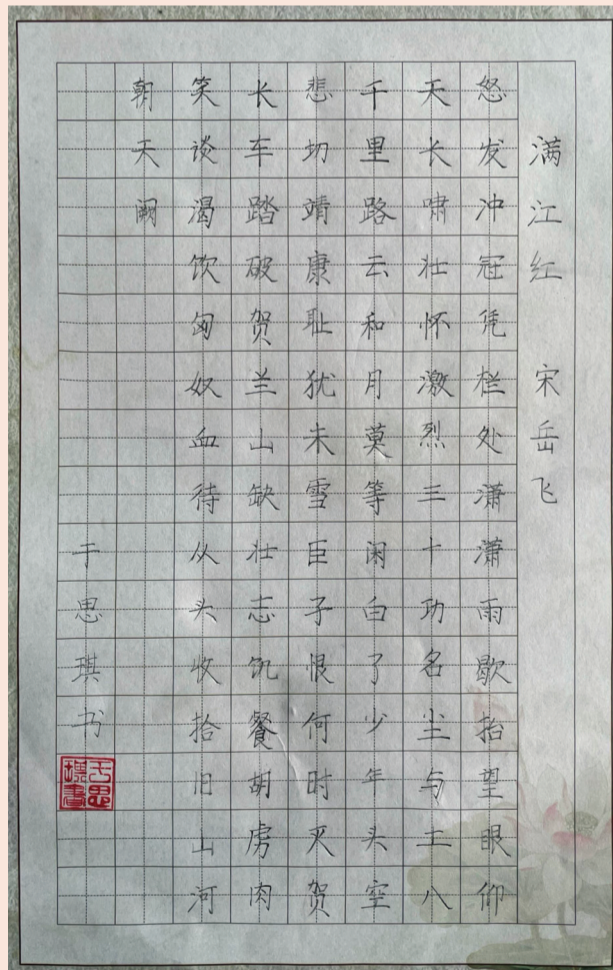 满江红 宋岳飞
怒发冲冠凭栏处潇潇雨歇抬望眼仰
天长啸壮怀激烈三十功名尘与土八
千里路云和月莫等闲白了少年头空
悲切靖康耻犹未雪臣子恨何时灭贺
长车踏破贺兰山缺壮志饥餐胡虏肉
笑谈渴饮匈奴血待从头收拾旧山河
朝天阙
于思琪书
于思
琪書